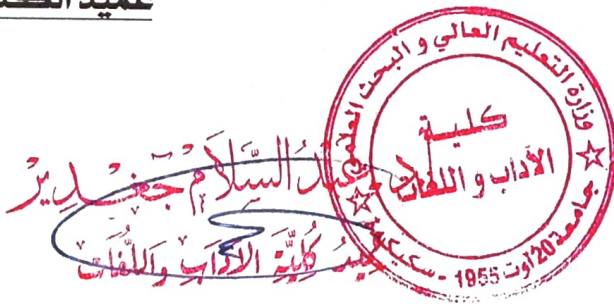 عميد الكلية
وزارة التعليم العالي و البحث العلمي
كليـة
الآداب و اللغات
جامعة 20 أوت 1955 - سكيكدة
د. عبدُ السَّلَام جغـديرْ
عميد كُليَّة الآدَاب وَاللُّغَات